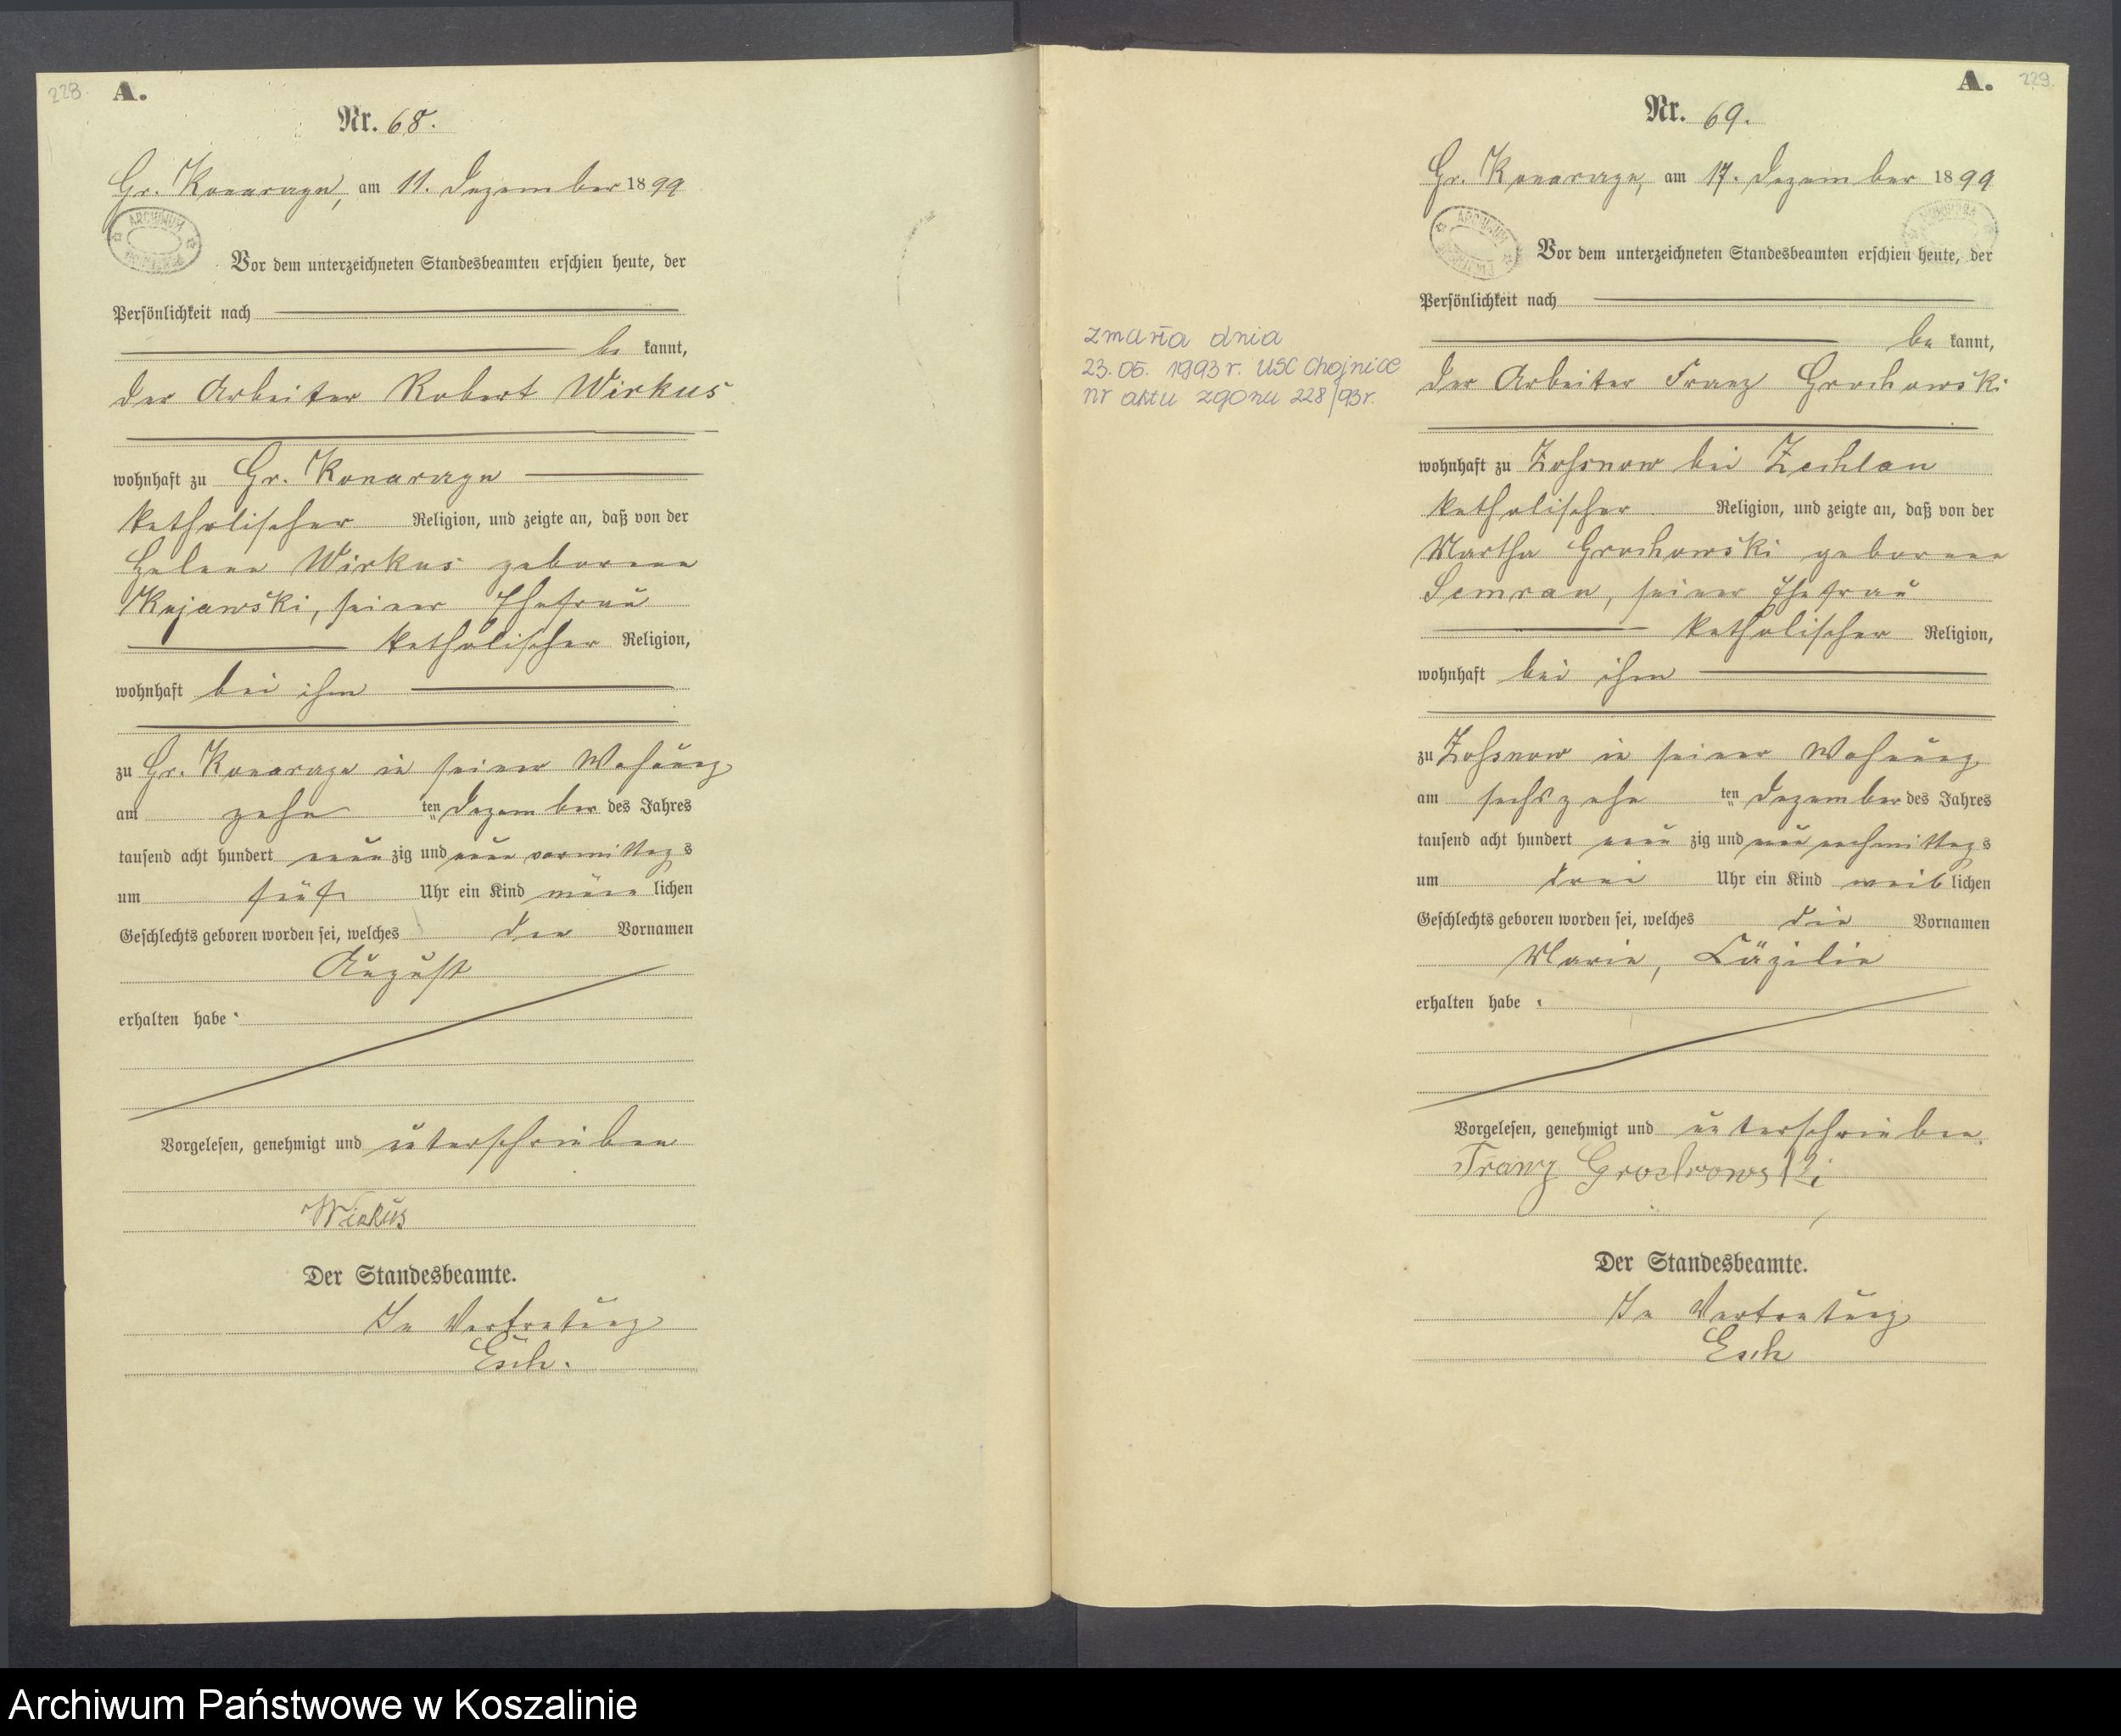 228.
A.
Nr. 68.
Gr. Konarczyn, am 11. Dezember 1899
ARCHIWUM
Vor dem unterzeichneten Standesbeamten erschien heute, der
Persönlichkeit nach
be kannt,
der Arbeiter Robert Wirkus
wohnhaft zu Gr. Konarczyn
katholischer Religion, und zeigte an, daß von der
Helene Wirkus geborene
Kujawski, seiner Ehefrau
katholischer Religion,
wohnhaft bei ihm
zu Gr. Konarczyn in seiner Wohnung
am zehn ten Dezember des Jahres
tausend acht hundert neun zig und neun vormittags
um fünf Uhr ein Kind männ lichen
Geschlechts geboren worden sei, welches den Vornamen
August
erhalten habe.
Vorgelesen, genehmigt und unterschrieben
Wirkus
Der Standesbeamte.
In Vertretung
Esch.
A.
229.
Nr. 69.
Gr. Konarczyn, am 17. Dezember 1899
ARCHIWUM
Vor dem unterzeichneten Standesbeamten erschien heute, der
Persönlichkeit nach
be kannt,
der Arbeiter Franz Grochowski
zmarła dnia
23.05. 1993 r. USC Chojnice
nr aktu zgonu 228/93r.
wohnhaft zu Zossnow bei Zechlau
katholischer Religion, und zeigte an, daß von der
Martha Grochowski geborene
Semrau, seiner Ehefrau
katholischer Religion,
wohnhaft bei ihm
zu Zossnow in seiner Wohnung
am sechszehn ten Dezember des Jahres
tausend acht hundert neun zig und neun nachmittags
um drei Uhr ein Kind weib lichen
Geschlechts geboren worden sei, welches die Vornamen
Marie, Cäzilie
erhalten habe.
Vorgelesen, genehmigt und unterschrieben.
Franz Grochowski
Der Standesbeamte.
In Vertretung
Esch
Archiwum Państwowe w Koszalinie